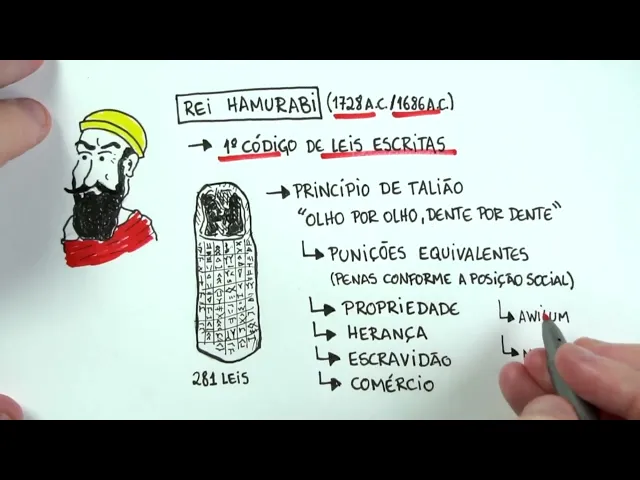 REI HAMURABI (1728 A.C./1686 A.C.)
→ 1º CÓDIGO DE LEIS ESCRITAS
→ PRINCÍPIO DE TALIÃO
"OLHO POR OLHO, DENTE POR DENTE"
PUNIÇÕES EQUIVALENTES
(PENAS CONFORME A POSIÇÃO SOCIAL)
PROPRIEDADE
HERANÇA
ESCRAVIDÃO
COMÉRCIO
AWILUM
281 LEIS